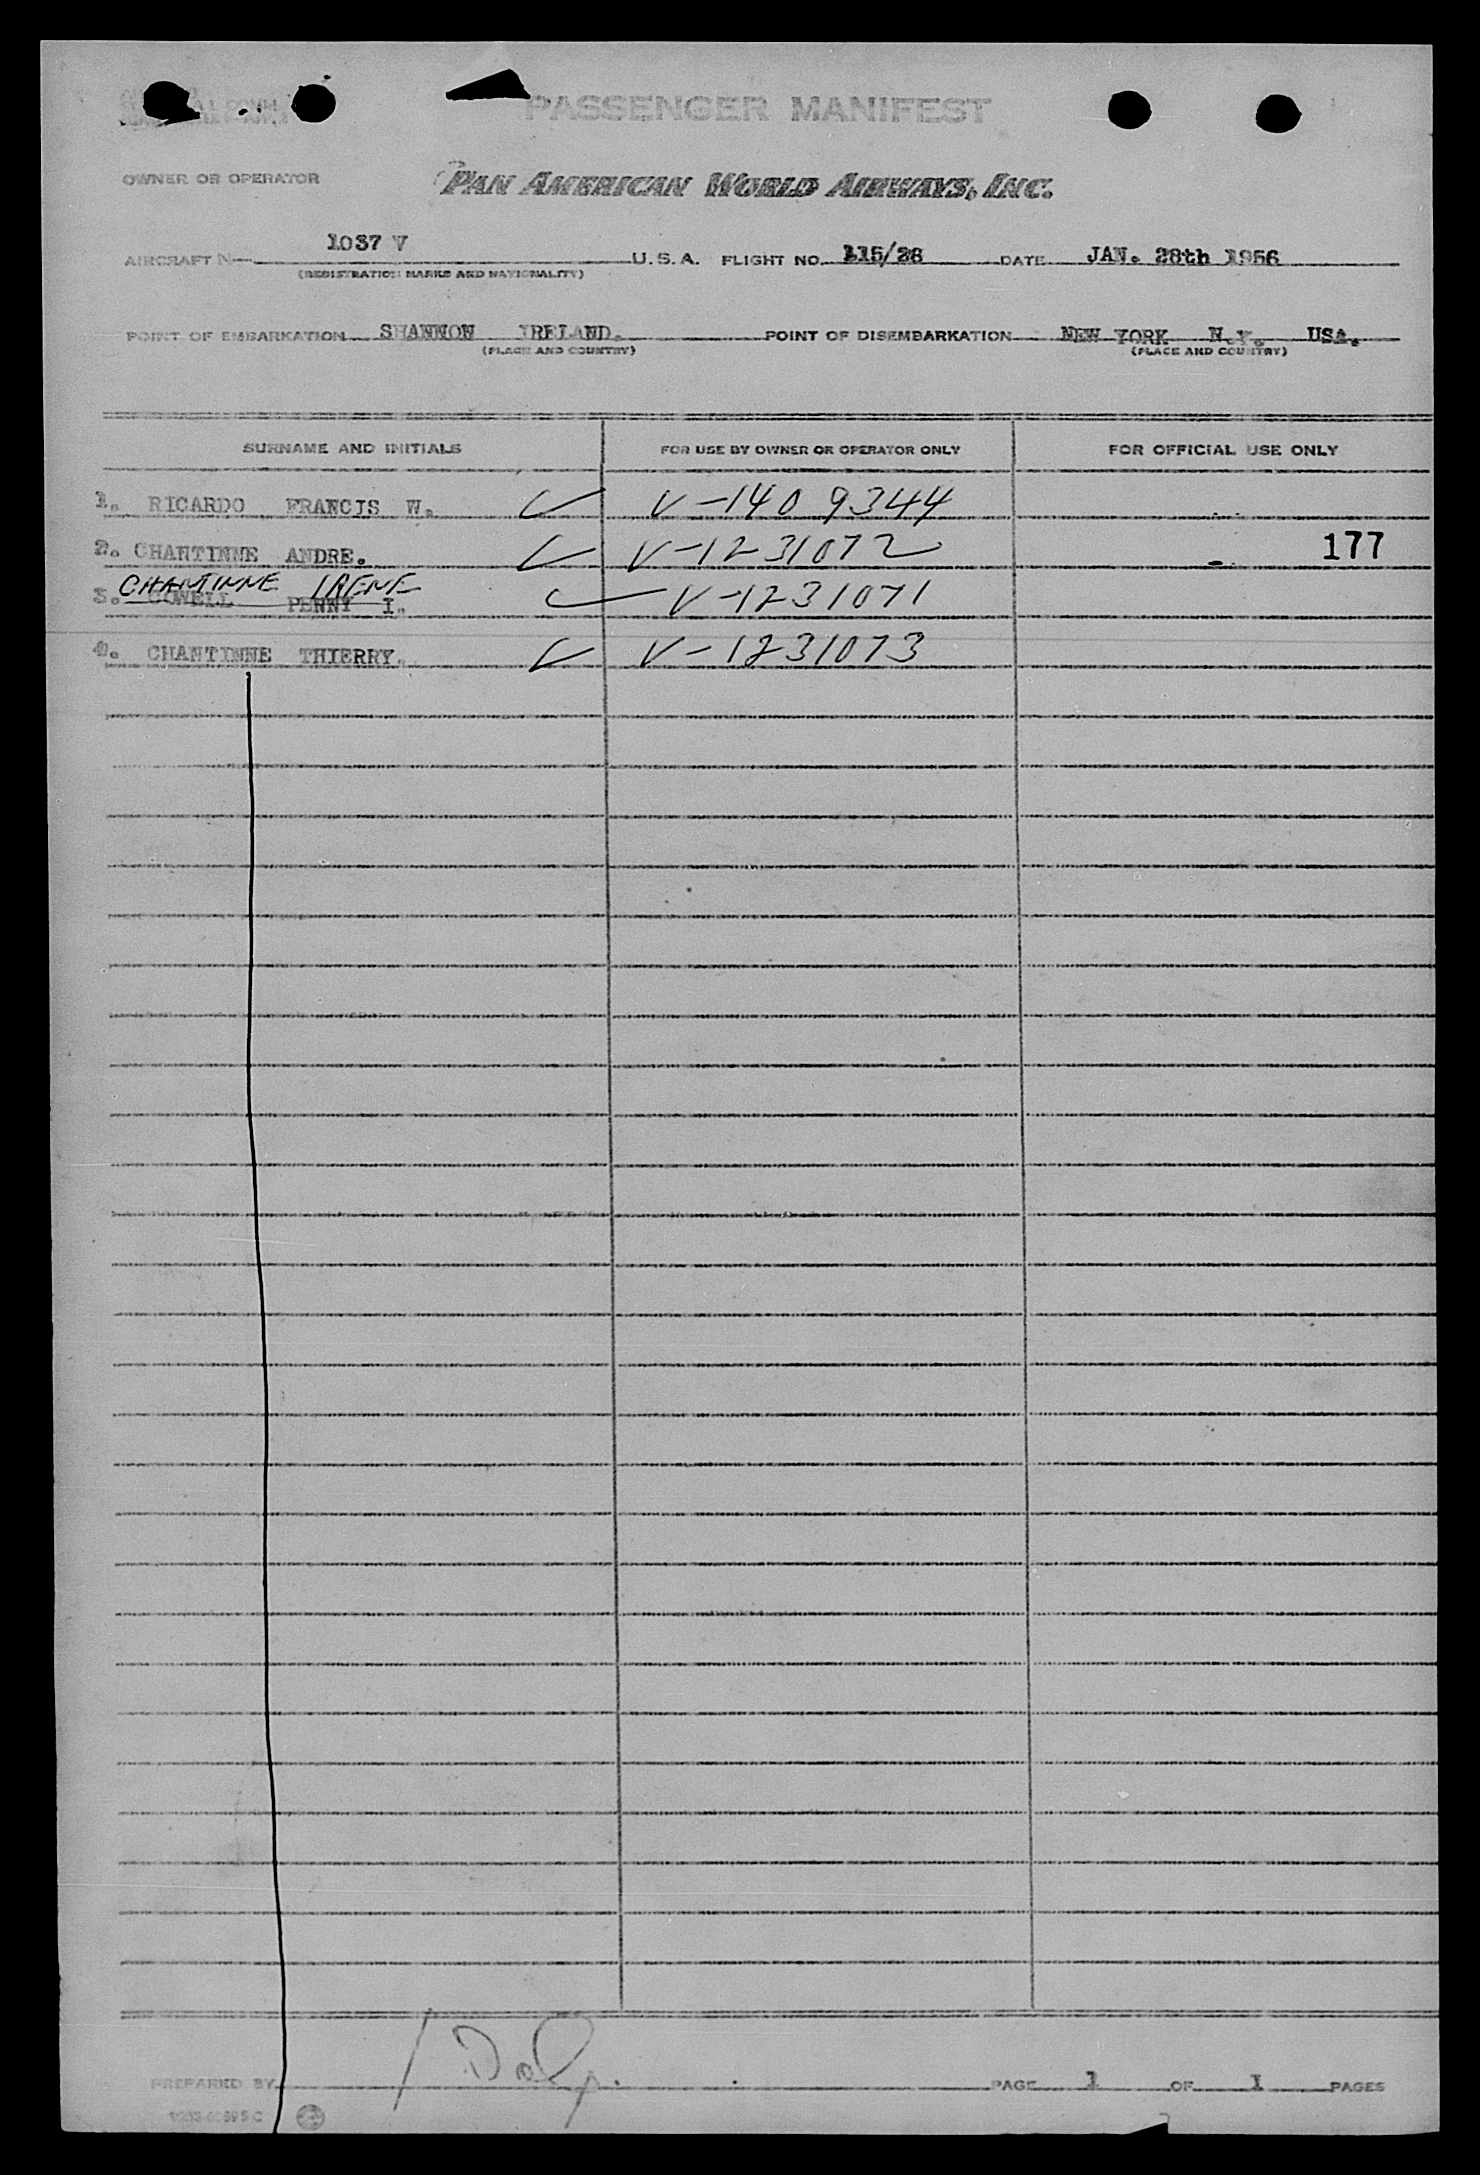 PASSENGER MANIFEST
OWNER OR OPERATOR PAN AMERICAN WORLD AIRWAYS, INC.
AIRCRAFT N 1037 V U.S.A. FLIGHT NO. 115/28 DATE JAN. 28th 1956
(REGISTRATION MARKS AND NATIONALITY)
POINT OF EMBARKATION SHANNON IRELAND. POINT OF DISEMBARKATION NEW YORK N.Y. USA.
(PLACE AND COUNTRY) (PLACE AND COUNTRY)
SURNAME AND INITIALS FOR USE BY OWNER OR OPERATOR ONLY FOR OFFICIAL USE ONLY
1. RICARDO FRANCIS W. V-1409344
2. CHANTINNE ANDRE. V-1231072 177
CHANTINNE IRENE
3. COWELL PENNY I. V-1231071
4. CHANTINNE THIERRY. V-1231073
PREPARED BY PAGE 1 OF 1 PAGES